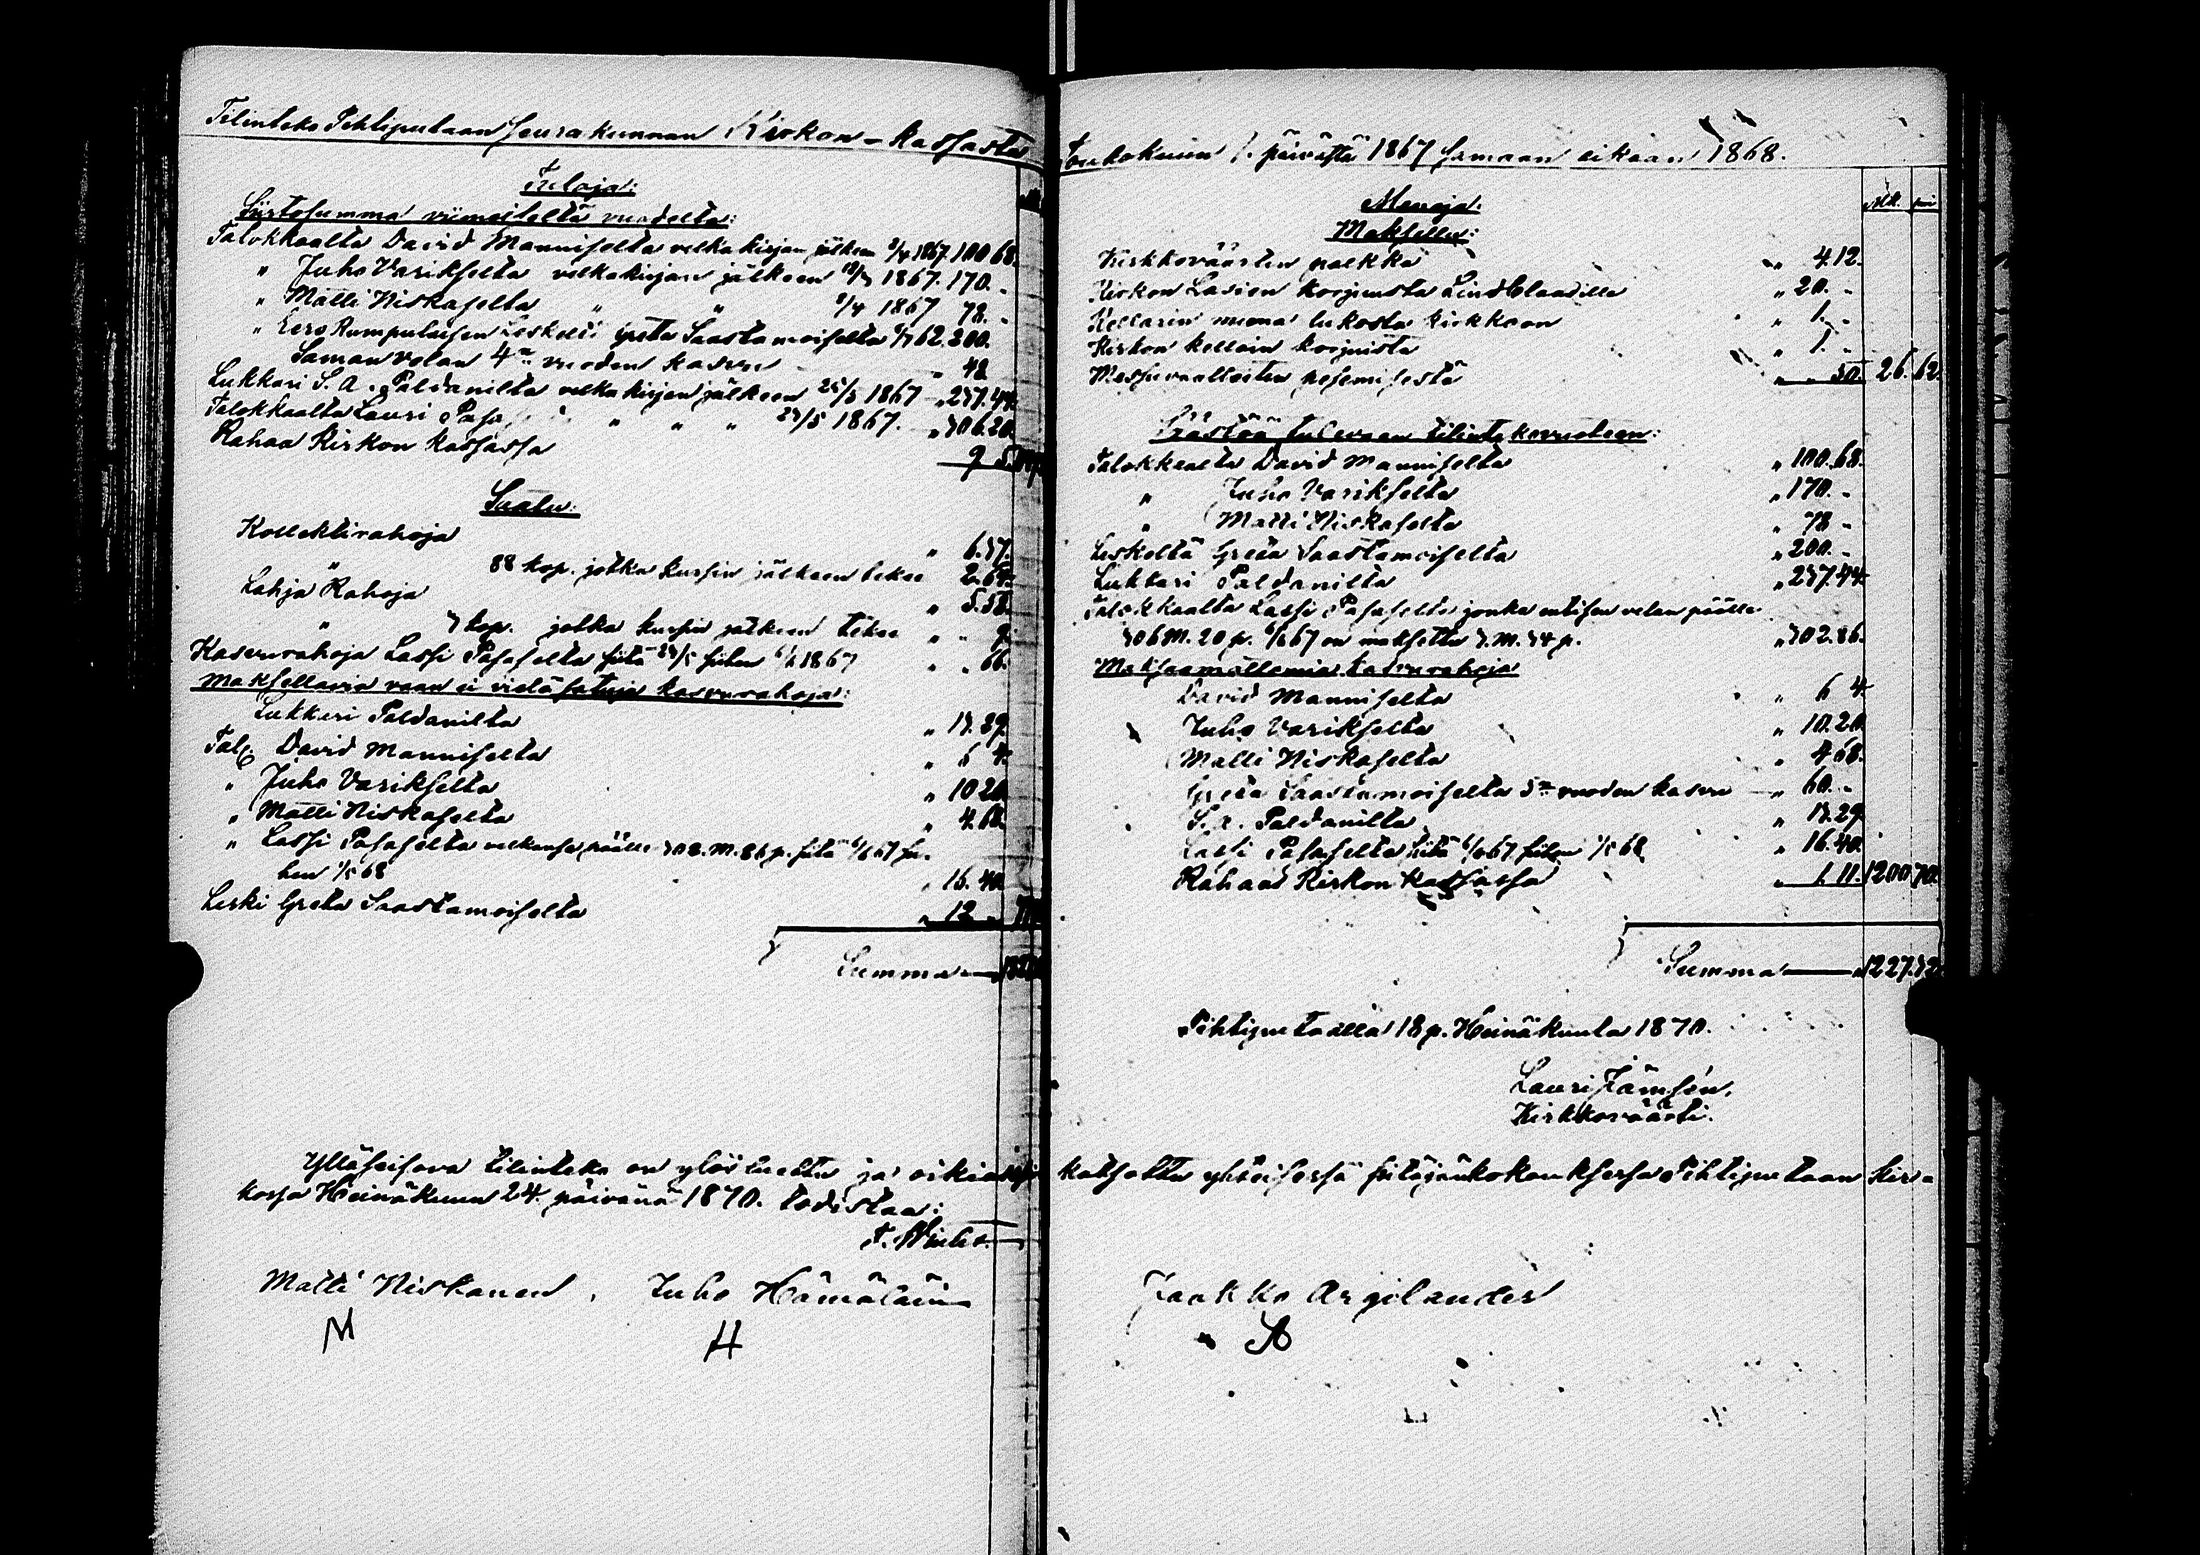 Tilinteko Pihtiputaan seurakunnan Kirkon-kassasta
Tuloja:
Siirtosumma viimeiseltä vuodelta:
Talokkaalta David Manniselta velkakirjan jälkeen 2/4 1867. 100 68.
" Juho Varikselta velkakirjan jälkeen 1867. 170. -
" Matti Niskaselta " " 2/4 1867 78. -
" Eero Rumputuisen Leskeltä Greta Saastamoiselta 62. 200.
Saman velan 4n vuoden kasvu " 48
Lukkari S. A. Paldanilta velkakirjan jälkeen 25/5 1867 " 237.44.
Talokkaalta Lauri Pasa " " " 25/5 1867. " 306.20.
Rahaa Kirkon kassassa 9 5.
Saatu:
Kollektirahoja " 6.37.
88 kop. jotka kurssin jälkeen tekee 2.64.
Lahja Rahoja " 5.58.
" 3 kop. jotka kurssin jälkeen tekee " " 9.
Kasvurahoja Lassi Pasaselta siitä 25/5 siihen 6/6 1867 " " 66.
Maksettavia vaan ei vielä satuja kasvurahoja:
Lukkari Paldanilta " 13.29.
Tal. David Manniselta " 6 4.
" Juho Varikselta " 10 20.
" Matti Niskaselta " 4.68.
" Lassi Pasaselta velkansa päälle 302.M.86 p. siitä 6/6 67 sii-
hen 1/5 68 " 16.40.
Leski Greta Saastamoiselta " 12 "
Summa
Toukokuun 1. päivästä 1867 samaan aikaan 1868.
Mk. pni
Menoja:
Maksettu:
Kirkkoväärtin palkka " 4.12.
Kirkon Lasien korjuusta Lindbladille " 20. -
Kellarin lukosta kirkkoon " 1. -
Kirkon kelloin korjuusta " 1. -
Messuvaatteiten pesemisestä " " 50. 26. 62.
Säästöä tulevaan tilintekovuoteen:
Talokkaalta David Manniselta " 100.68.
" Juho Varikselta " 170. -
" Matti Niskaselta " 78 -
Leskeltä Greta Saastamoiselta " 200. -
Lukkari Paldanilta " 237.44
Talokkaalta Lassi Pasaselta jonka entisen velan päälle
306 M. 20 p. 6/6 67 on maksettu 3.M.34 p. " 302.86.
Maksaamattomia kasvurahoja
David Manniselta " 6 4
Juho Varikselta " 10.20
Matti Niskaselta " 4 68.
Greta Saastamoiselta 5n vuoden kasvu " 60. -
S. A. Paldanilta " 13.29
Lassi Pasaselta siitä 6/6 67 siihen 1/5 68 " 16.40.
Rahaa Kirkon kassassa " 1. 11. 1200 70.
Summa 1227.32.
Pihtiputaalla 18 p. Heinäkuuta 1870.
Lauri Jämsén,
Kirkkoväärti.
Ylläseisova tilinteko on ylösluettu ja oikiaksi katsottu yhteisessä pitäjänkokouksessa Pihtiputaan kir-
kossa Heinäkuun 24. päivänä 1870. todistaa:
Matti Niskanen, Juho Hämäläin Jaakko Argilander
M H A